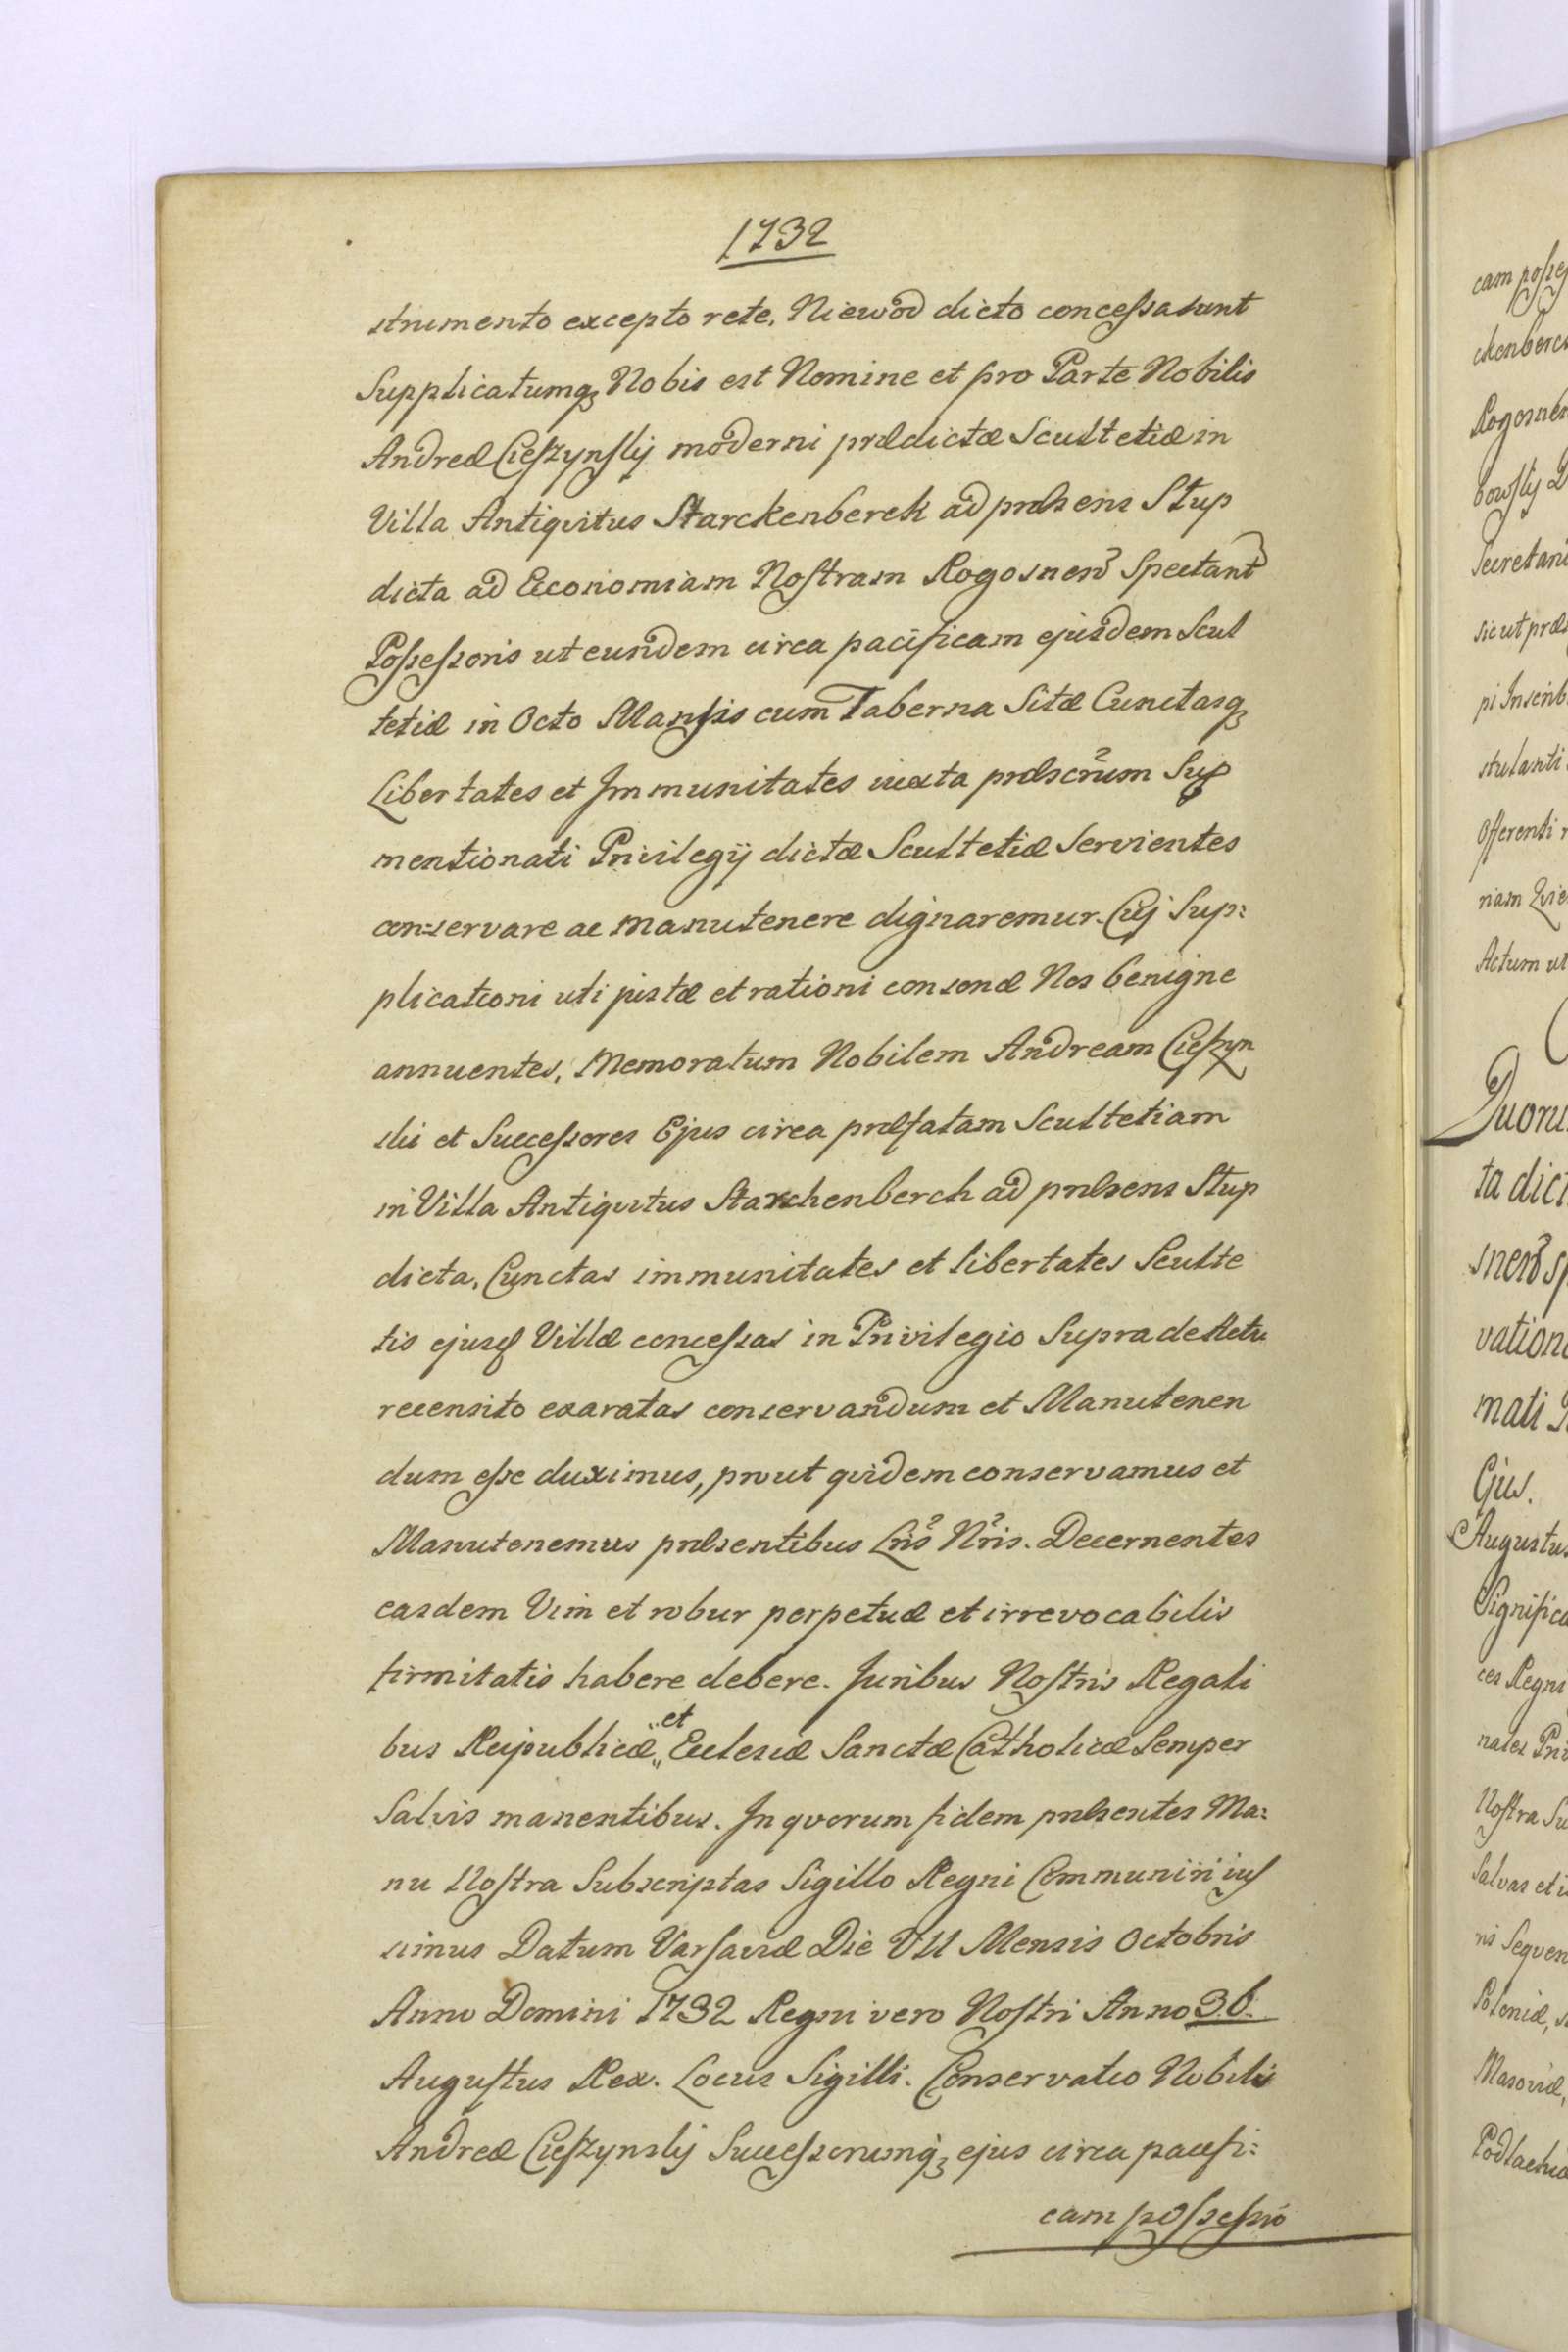 1732
strumento excepto rete, Niewod dicto concessa sunt
Supplicatumq3 Nobis est Nomine et pro Parte Nobilis
Andreæ Cieszynskij moderni prædictæ Scultetiæ in
Villa Antiqvitus Starckenberck ad præsens Stup
dicta ad Œconomiam Nostram Rogosnens Spectant
Possessoris ut eundem circa pacificam ejusdem Scul
tetiæ in Octo Mansis cum Taberna Sitæ Cunctasq3
Libertates et Immunitates iuxta præscrum Sup
mentionati Privilegij dictæ Scultetiæ Servientes
conservare ac manutenere dignaremur. Cuj Sup:
plicationi uti justæ et rationi consonæ Nos benigne
annuentes, Memoratum Nobilem Andream Cieszyn
ski et Successores Ejus circa præfatam Scultetiam
in Villa Antiqvitus Starckenberch ad præsens Stup
dicta, Cunctas immunitates et libertates Sculte
tis ejusq Villæ concessas in Privilegio Supra de Actu
recensito exaratas conservandum et Manutenen
dum esse duximus, prout qvidem conservamus et
Manutenemus præsentibus Lris Nris. Decernentes
easdem Vim et robur perpetuæ et irrevocabilis
firmitatis habere debere. Juribus Nostris Regali
bus Reipublicæ, et Ecclesiæ Sanctæ Catholicæ Semper
Salvis manentibus. In qvorum fidem præsentes Ma:
nu Nostra Subscriptas Sigillo Regni Communiri ius
simus Datum Varsaviæ Die VII Mensis Octobris
Anno Domini 1732 Regni vero Nostri Anno 36.
Augustus Rex. Locus Sigilli. Conservatio Nobilis
Andreæ Cieszynskij Successorumq3 ejus circa pacifi:
cam possessio
cam posses
ckenberc
Rogosnen
bowskij
Secretari
sicut præs
pi Inscrib
stulanti
Offerenti
niam
Actum ut
Quoru
ta dict
snens sp
vation
mati
Ejus.
Augustus
Significa
ces Regni
nales Pri
Nostra Su
Salvas et i
ris Seqven
Poloniæ,
Masoviæ,
Podlachiæ